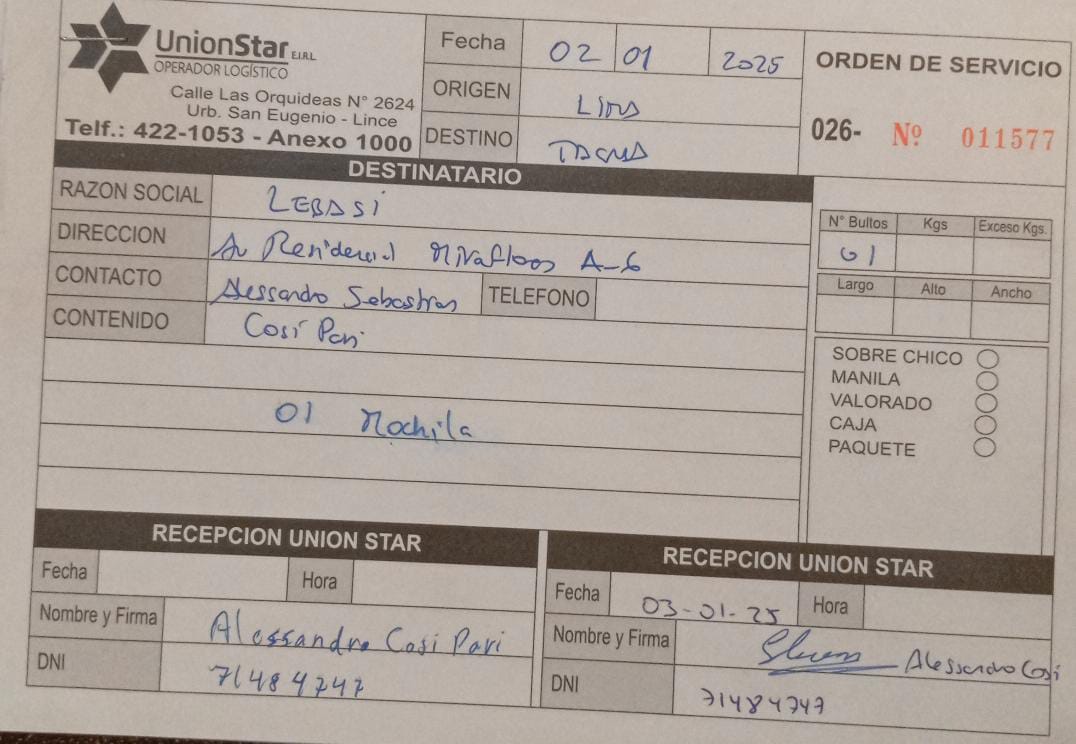 UnionStar E.I.R.L
OPERADOR LOGÍSTICO
Calle Las Orquideas N° 2624
Urb. San Eugenio - Lince
Telf.: 422-1053 - Anexo 1000
Fecha 02 01 2025
ORIGEN Lima
DESTINO Tacna
ORDEN DE SERVICIO
026- Nº 011577
DESTINATARIO
RAZON SOCIAL LEBASi
DIRECCION Av Residencial Miraflores A-6
CONTACTO Alessandro Sebastian TELEFONO
CONTENIDO Cosi Pari
01 Mochila
N° Bultos Kgs Exceso Kgs.
01
Largo Alto Ancho
SOBRE CHICO
MANILA
VALORADO
CAJA
PAQUETE
RECEPCION UNION STAR
Fecha Hora
Nombre y Firma Alessandro Cosi Pari
DNI 71484747
RECEPCION UNION STAR
Fecha 03-01-25 Hora
Nombre y Firma Alessandro Cosi
DNI 71484747